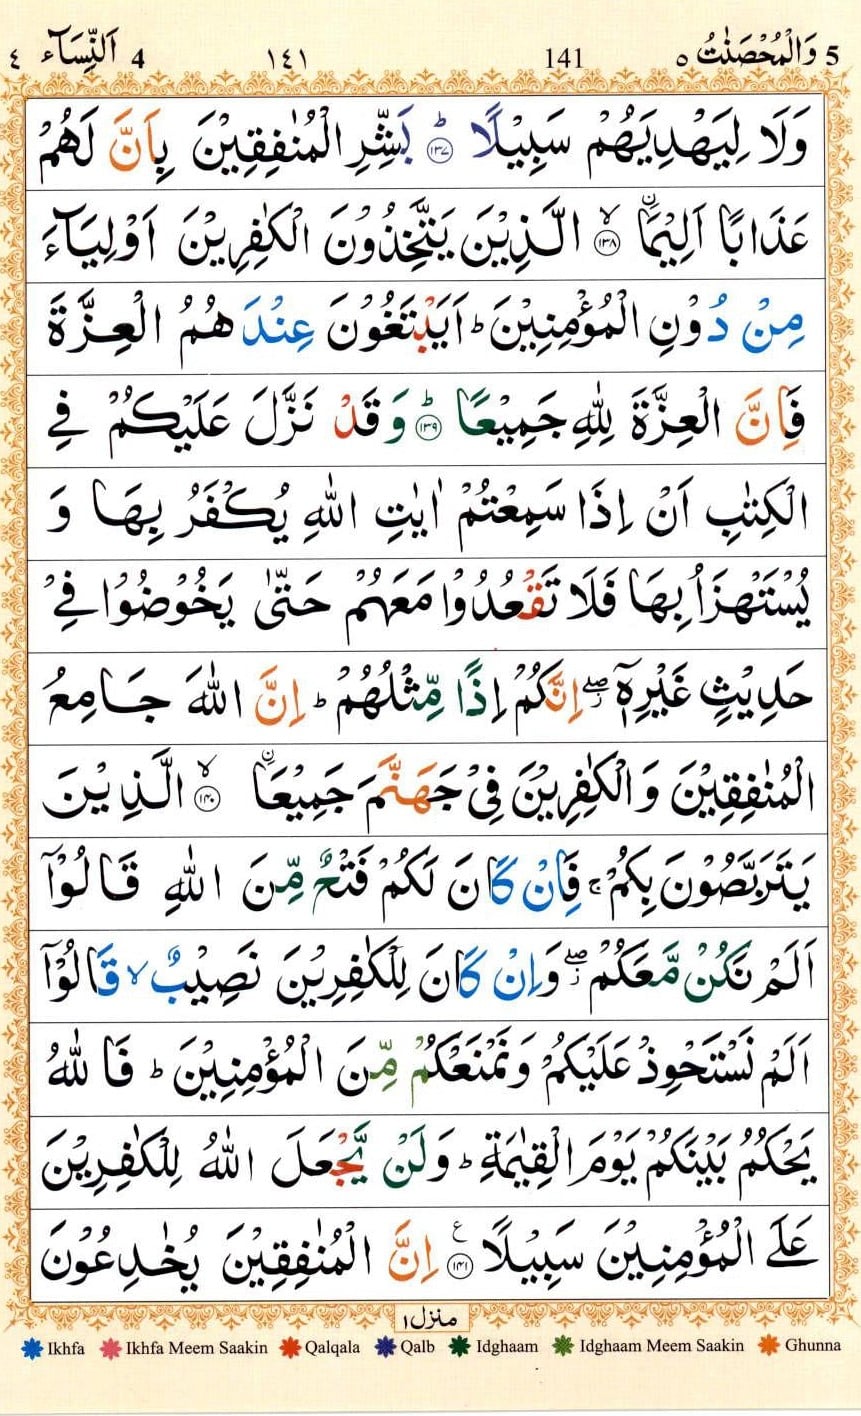 5 وَالْمُحْصَنٰتُ ٥ 141 ١٤١ 4 اَلنِّسَآء ٤
وَلَا لِيَهْدِيَهُمْ سَبِيْلًا ؕ ﴿۱۳۷﴾ بَشِّرِ الْمُنٰفِقِيْنَ بِاَنَّ لَهُمْ
عَذَابًا اَلِيْمَاۨ ﴿۱۳۸﴾ ۙ الَّذِيْنَ يَتَّخِذُوْنَ الْكٰفِرِيْنَ اَوْلِيَآءَ
مِنْ دُوْنِ الْمُؤْمِنِيْنَ ؕ اَيَبْتَغُوْنَ عِنْدَهُمُ الْعِزَّةَ
فَاِنَّ الْعِزَّةَ لِلّٰهِ جَمِيْعًا ؕ ﴿۱۳۹﴾ وَقَدْ نَزَّلَ عَلَيْكُمْ فِي
الْكِتٰبِ اَنْ اِذَا سَمِعْتُمْ اٰيٰتِ اللّٰهِ يُكْفَرُ بِهَا وَ
يُسْتَهْزَاُ بِهَا فَلَا تَقْعُدُوْا مَعَهُمْ حَتّٰى يَخُوْضُوْا فِيْ
حَدِيْثٍ غَيْرِهٖۤ ۖ اِنَّكُمْ اِذًا مِّثْلُهُمْ ؕ اِنَّ اللّٰهَ جَامِعُ
الْمُنٰفِقِيْنَ وَالْكٰفِرِيْنَ فِيْ جَهَنَّمَ جَمِيْعَاۨ ﴿۱۴۰﴾ ۙ الَّذِيْنَ
يَتَرَبَّصُوْنَ بِكُمْ ۚ فَاِنْ كَانَ لَكُمْ فَتْحٌ مِّنَ اللّٰهِ قَالُوْۤا
اَلَمْ نَكُنْ مَّعَكُمْ ۖ وَاِنْ كَانَ لِلْكٰفِرِيْنَ نَصِيْبٌ ۙ قَالُوْۤا
اَلَمْ نَسْتَحْوِذْ عَلَيْكُمْ وَنَمْنَعْكُمْ مِّنَ الْمُؤْمِنِيْنَ ؕ فَاللّٰهُ
يَحْكُمُ بَيْنَكُمْ يَوْمَ الْقِيٰمَةِ ؕ وَلَنْ يَّجْعَلَ اللّٰهُ لِلْكٰفِرِيْنَ
عَلَى الْمُؤْمِنِيْنَ سَبِيْلًا ﴿۱۴۱﴾ ع اِنَّ الْمُنٰفِقِيْنَ يُخٰدِعُوْنَ
منزل ١
Ikhfa Ikhfa Meem Saakin Qalqala Qalb Idghaam Idghaam Meem Saakin Ghunna